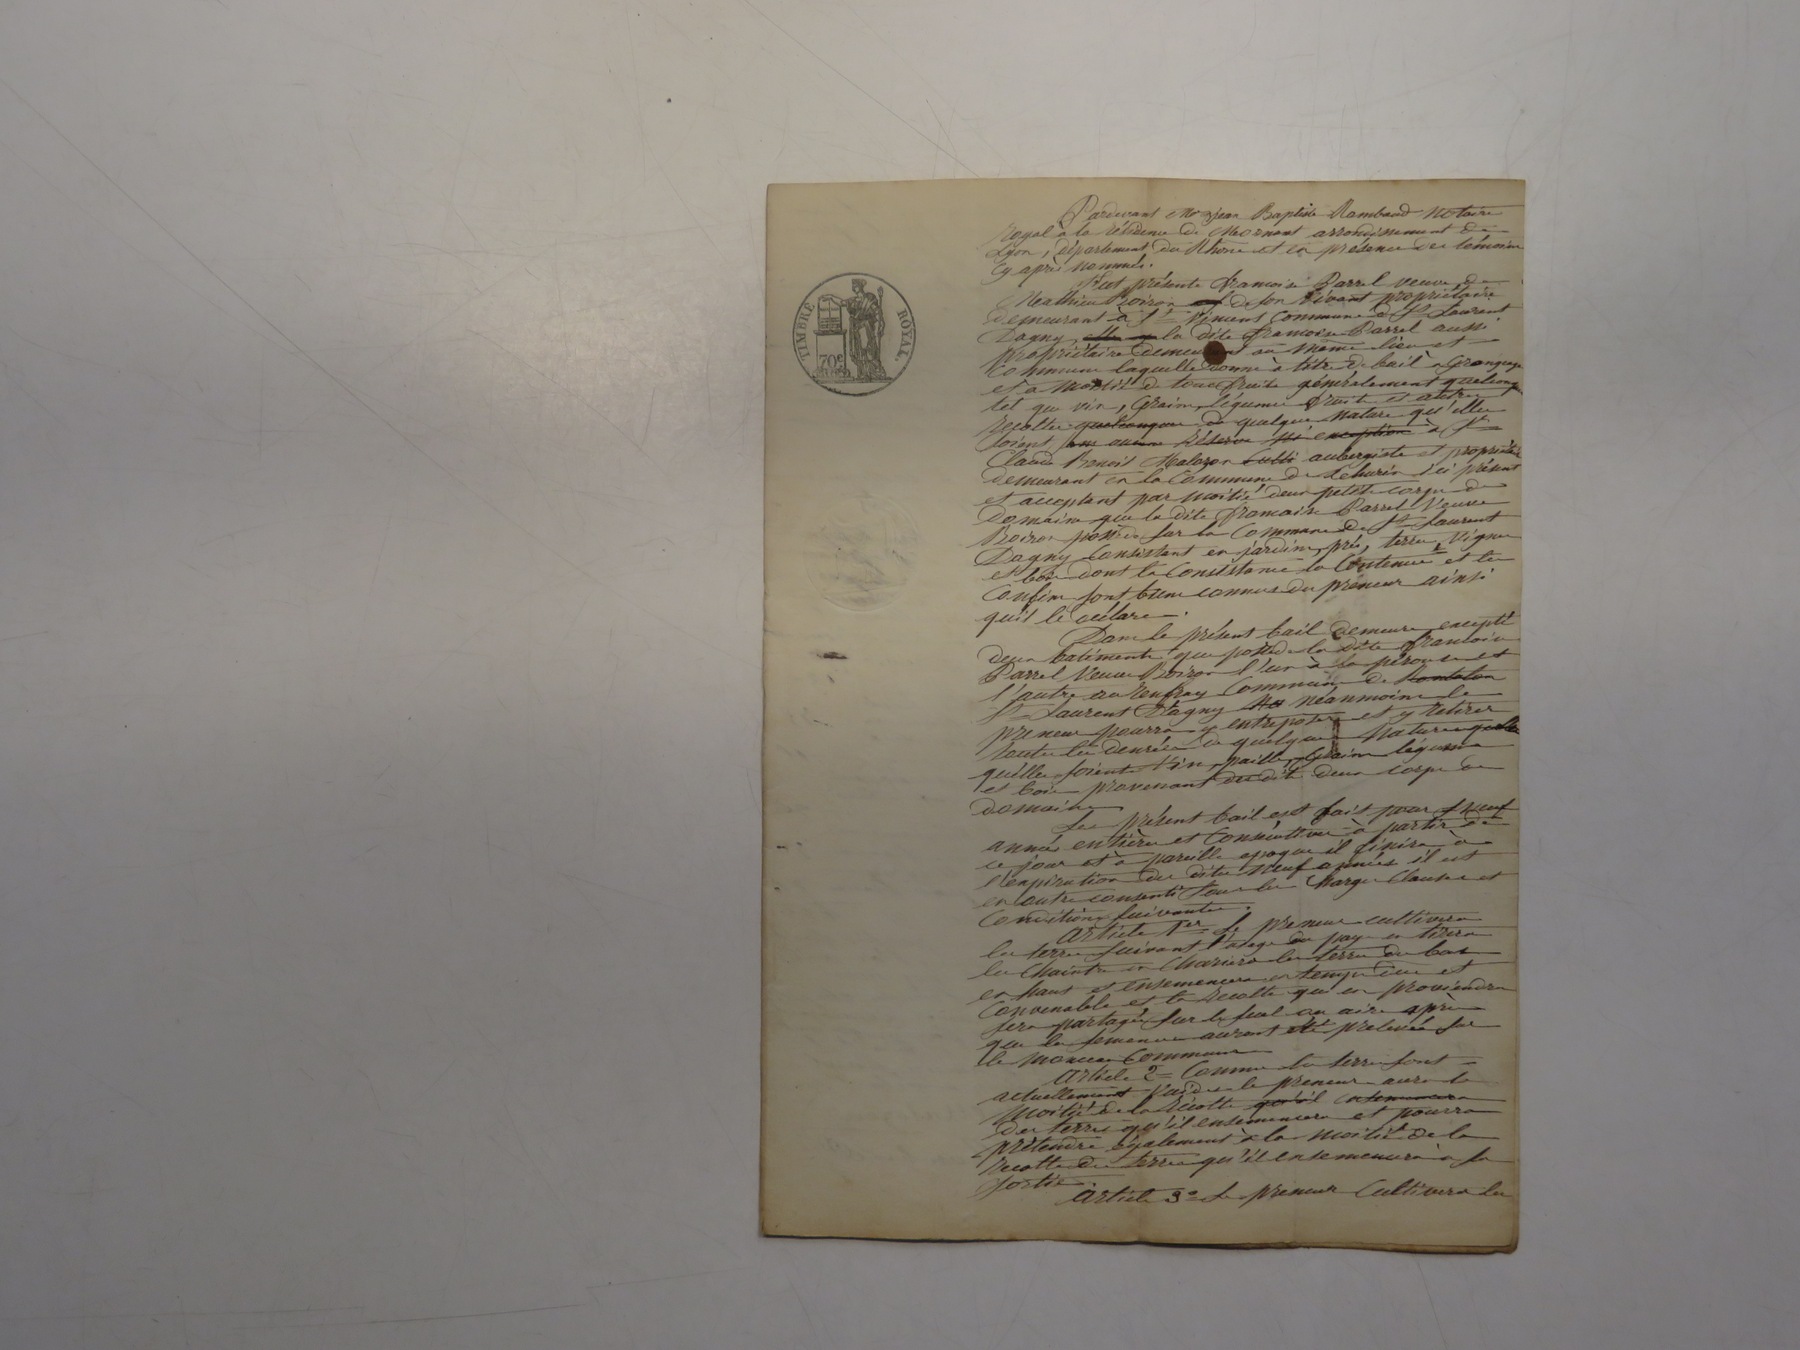 TIMBRE ROYAL.
70c
Pardevant Me Jean Baptiste Rambaud Notaire
Royal à la résidence de Mornant arrondissement de
Lyon, département du Rhône et en présence des témoins
cy après nommés.
Fut présente francoise Barrel veuve de
Mathieu Boiron de son vivant propriétaire
demeurant à St Vincent Commune de St Laurent
Dagny, la dite francoise Barrel aussi
propriétaire demeurant au même lieu et
Commune laquelle donne à titre de bail à Grangeage
et à moitié de tous fruits généralement quelconques
tel que vin, Grain, légumes fruits et autres
récoltes quelconques de quelque nature qu'elles
soient sans aucune réserve ni exception à Sr
Claude Benoit aubergiste et propriétaire
demeurant en la Commune de ici présent
et acceptant par moitié deux petits corps de
Domaine que la dite francoise Barrel Veuve
Boiron possède sur la Commune de St Laurent
Dagny Consistant en jardin, pré, terre, Vigne
et bois dont la Consistance la Contenue et les
Confins sont bien connus du preneur ainsi
qu'il le déclare.
Dans le présent bail demeure excepté
deux batiments que possède la dite francoise
Barrel Veuve Boiron l'un à la et
l'autre au Commune de
St Laurent Dagny néanmoins le
preneur pourra y entreposer et y retirer
toutes les denrées de quelque Nature
quelles soient Vin, paille, Grain légumes
et bois provenant desdits deux corps de
domaine
Le présent bail est fait pour Neuf
années entières et Consécutives à partir de
ce jour et à pareille époque il finira à
l'expiration des dites Neuf années il est
en outre consenti sous les Charges Clauses et
Conditions suivantes.
Article 1er Le preneur cultivera
les terres suivant l'usage du pays en tirera
les Chaintres en Chariera les terres du bas
en haut et ensemencera en temps dus et
Convenable et la récolte qui en proviendra
sera partagée sur le sual ou aire après
que les semences auront été prelevées sur
le monceau Commun
Article 2e Comme les terres sont
actuellement Vuides le preneur aura la
Moitié de la Récolte qu'il ensemencera
des terres qu'il ensemencera et pourra
prétendre également à la Moitié de la
récolte des terres qu'il ensemencera à sa
sortie.
Article 3e Le preneur Cultivera les